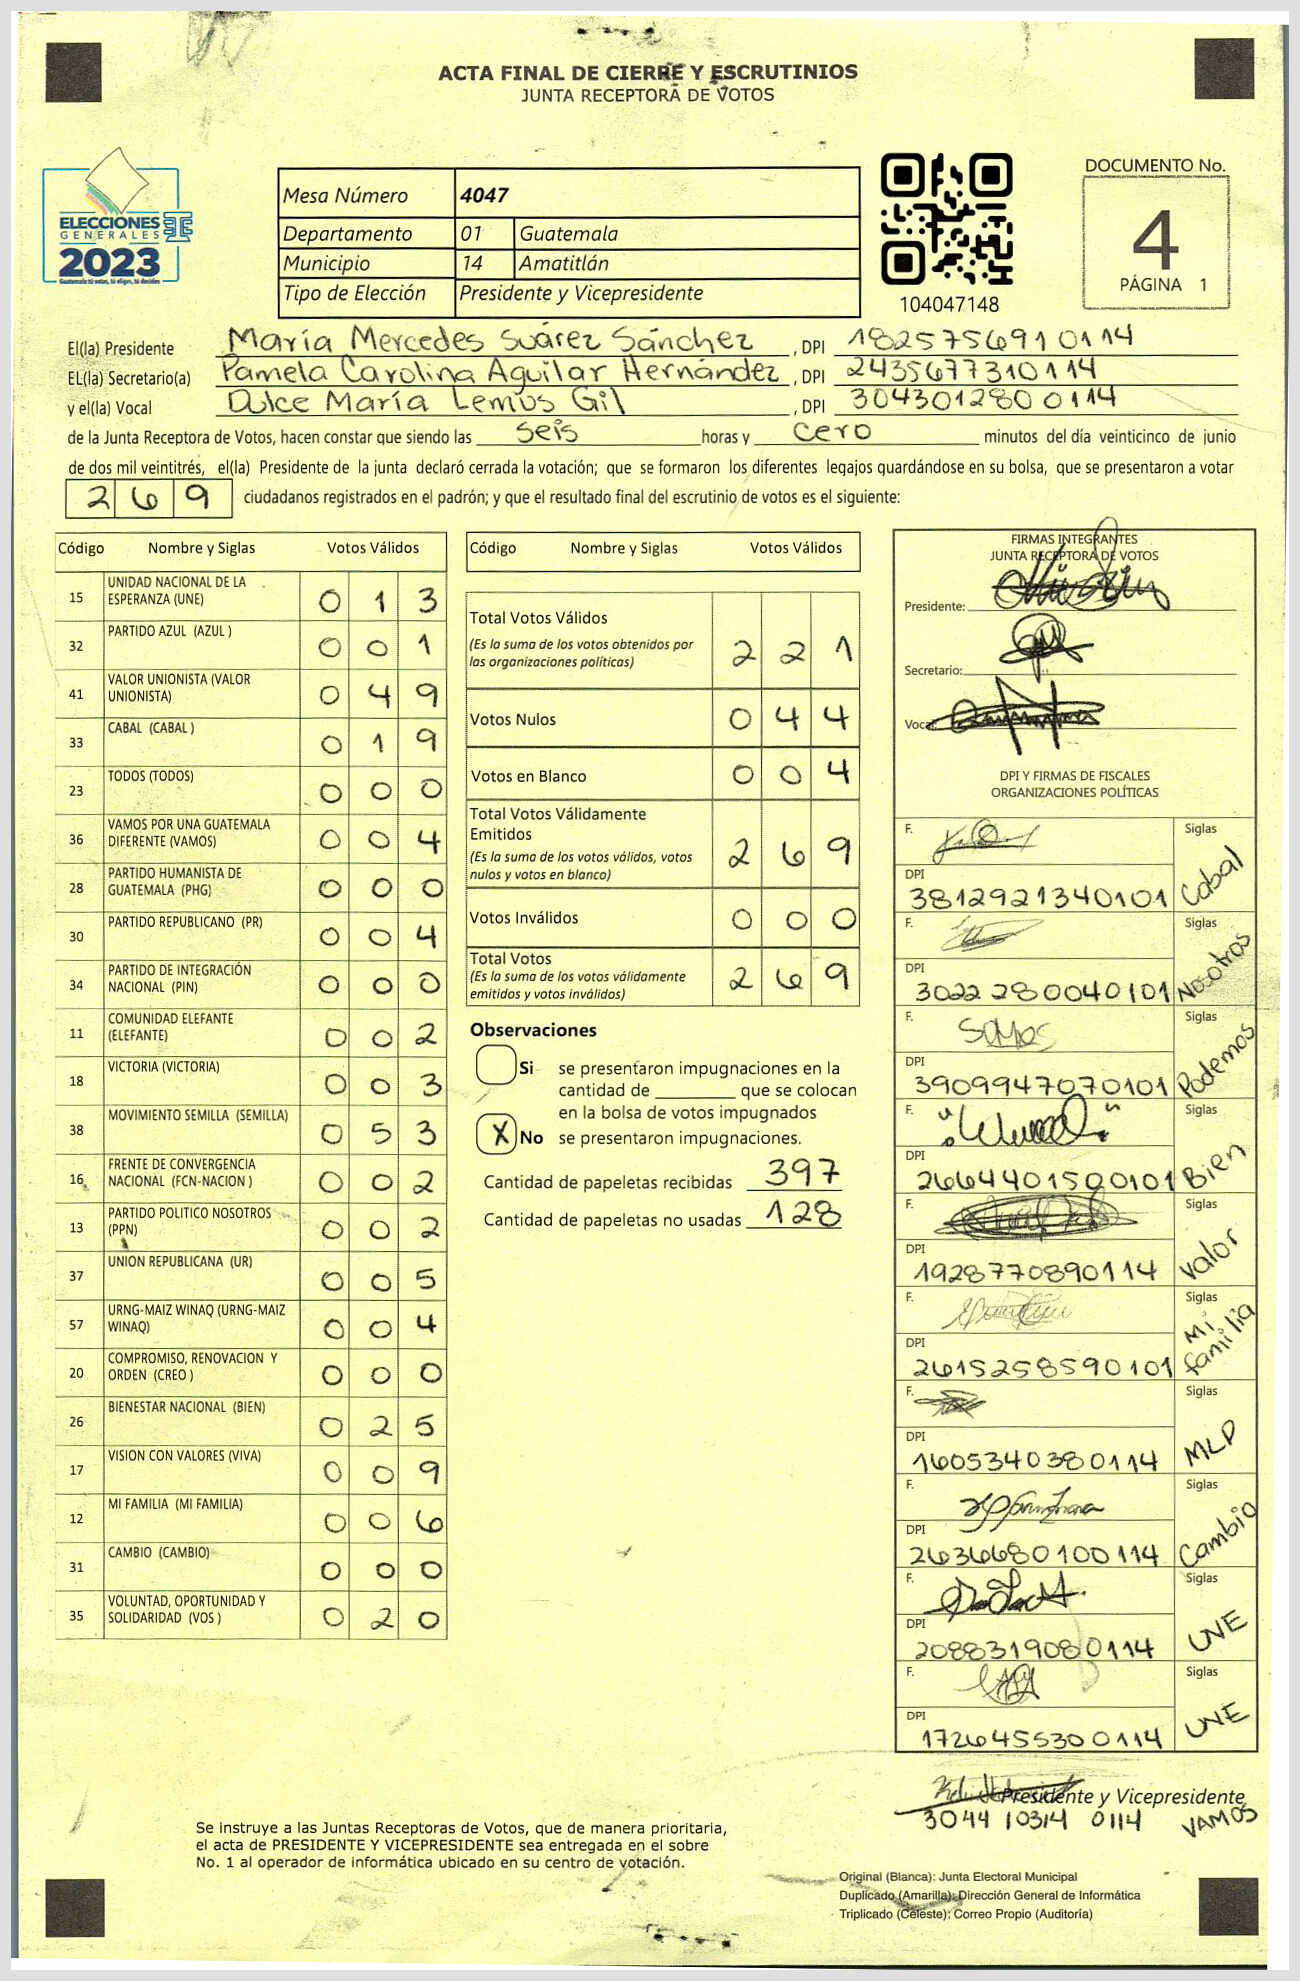 ACTA FINAL DE CIERRE Y ESCRUTINIOS
JUNTA RECEPTORA DE VOTOS
ELECCIONES
GENERALES
2023
Guatemala tú votas, tú eliges, tú decides
Mesa Número 4047
Departamento 01 Guatemala
Municipio 14 Amatitlán
Tipo de Elección Presidente y Vicepresidente
104047148
DOCUMENTO No.
4
PÁGINA 1
El(la) Presidente María Mercedes Suárez Sánchez , DPI 1825756910114
EL(la) Secretario(a) Pamela Carolina Aguilar Hernández , DPI 2435677310114
y el(la) Vocal Dulce María Lemus Gil , DPI 3043012800114
de la Junta Receptora de Votos, hacen constar que siendo las seis horas y cero minutos del día veinticinco de junio
de dos mil veintitrés, el(la) Presidente de la junta declaró cerrada la votación; que se formaron los diferentes legajos quardándose en su bolsa, que se presentaron a votar
269 ciudadanos registrados en el padrón; y que el resultado final del escrutinio de votos es el siguiente:
Código Nombre y Siglas Votos Válidos
15 UNIDAD NACIONAL DE LA ESPERANZA (UNE) 0 1 3
32 PARTIDO AZUL (AZUL ) 0 0 1
41 VALOR UNIONISTA (VALOR UNIONISTA) 0 4 9
33 CABAL (CABAL ) 0 1 9
23 TODOS (TODOS) 0 0 0
36 VAMOS POR UNA GUATEMALA DIFERENTE (VAMOS) 0 0 4
28 PARTIDO HUMANISTA DE GUATEMALA (PHG) 0 0 0
30 PARTIDO REPUBLICANO (PR) 0 0 4
34 PARTIDO DE INTEGRACIÓN NACIONAL (PIN) 0 0 0
11 COMUNIDAD ELEFANTE (ELEFANTE) 0 0 2
18 VICTORIA (VICTORIA) 0 0 3
38 MOVIMIENTO SEMILLA (SEMILLA) 0 5 3
16 FRENTE DE CONVERGENCIA NACIONAL (FCN-NACION ) 0 0 2
13 PARTIDO POLITICO NOSOTROS (PPN) 0 0 2
37 UNION REPUBLICANA (UR) 0 0 5
57 URNG-MAIZ WINAQ (URNG-MAIZ WINAQ) 0 0 4
20 COMPROMISO, RENOVACION Y ORDEN (CREO ) 0 0 0
26 BIENESTAR NACIONAL (BIEN) 0 2 5
17 VISION CON VALORES (VIVA) 0 0 9
12 MI FAMILIA (MI FAMILIA) 0 0 6
31 CAMBIO (CAMBIO) 0 0 0
35 VOLUNTAD, OPORTUNIDAD Y SOLIDARIDAD (VOS ) 0 2 0
Código Nombre y Siglas Votos Válidos
Total Votos Válidos 2 2 1
(Es la suma de los votos obtenidos por
las organizaciones políticas)
Votos Nulos 0 4 4
Votos en Blanco 0 0 4
Total Votos Válidamente
Emitidos 2 6 9
(Es la suma de los votos válidos, votos
nulos y votos en blanco)
Votos Inválidos 0 0 0
Total Votos 2 6 9
(Es la suma de los votos válidamente
emitidos y votos inválidos)
Observaciones
Si se presentaron impugnaciones en la
cantidad de ________ que se colocan
en la bolsa de votos impugnados
X No se presentaron impugnaciones.
Cantidad de papeletas recibidas 397
Cantidad de papeletas no usadas 128
FIRMAS INTEGRANTES
JUNTA RECEPTORA DE VOTOS
Presidente:
Secretario:
Vocal:
DPI Y FIRMAS DE FISCALES
ORGANIZACIONES POLÍTICAS
F. Siglas
DPI 3812921340101 Cabal
F. Siglas
DPI 3022280040101 Nosotros
F. Siglas
DPI 3909947070101 Podemos
F. Siglas
DPI 2664401500101 Bien
F. Siglas
DPI 1928770890114 Valor
F. Siglas
DPI 2615258590101 Mi familia
F. Siglas
DPI 1605340380114 MLP
F. Siglas
DPI 2636680100114 Cambio
F. Siglas
DPI 2088319080114 UNE
F. Siglas
DPI 1726455300114 UNE
Presidente y Vicepresidente
3044 10314 0114 VAMOS
Se instruye a las Juntas Receptoras de Votos, que de manera prioritaria,
el acta de PRESIDENTE Y VICEPRESIDENTE sea entregada en el sobre
No. 1 al operador de informática ubicado en su centro de votación.
Original (Blanca): Junta Electoral Municipal
Duplicado (Amarilla): Dirección General de Informática
Triplicado (Celeste): Correo Propio (Auditoría)